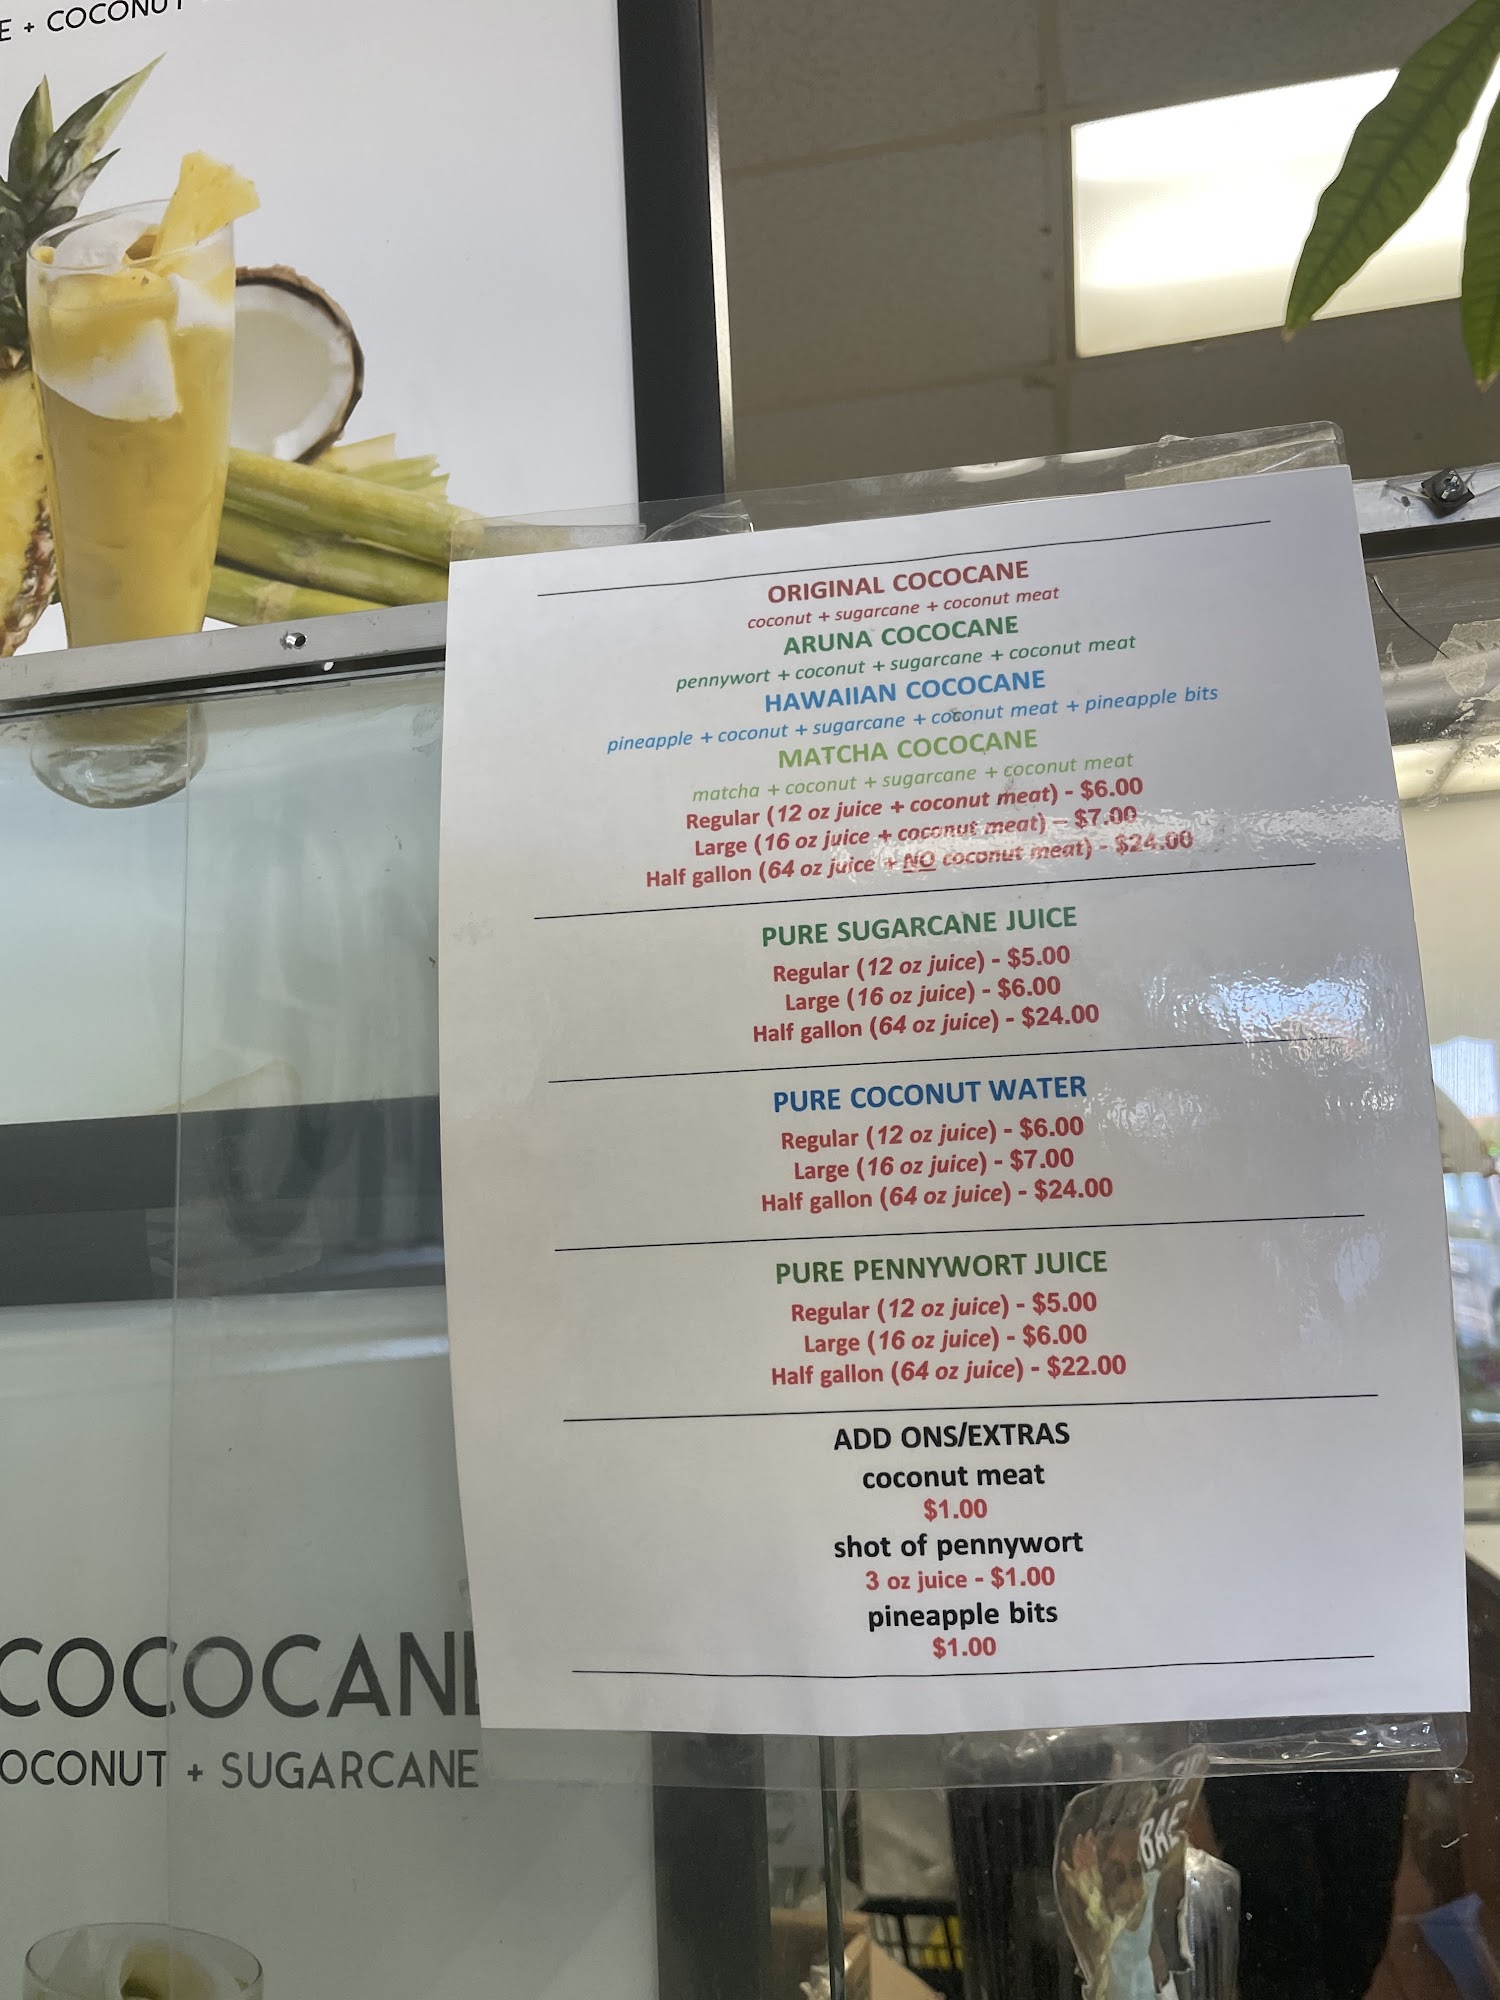 E + COCONUT
ORIGINAL COCOCANE
coconut + sugarcane + coconut meat
ARUNA COCOCANE
pennywort + coconut + sugarcane + coconut meat
HAWAIIAN COCOCANE
pineapple + coconut + sugarcane + coconut meat + pineapple bits
MATCHA COCOCANE
matcha + coconut + sugarcane + coconut meat
Regular (12 oz juice + coconut meat) - $6.00
Large (16 oz juice + coconut meat) – $7.00
Half gallon (64 oz juice + NO coconut meat) - $24.00
PURE SUGARCANE JUICE
Regular (12 oz juice) - $5.00
Large (16 oz juice) - $6.00
Half gallon (64 oz juice) - $24.00
PURE COCONUT WATER
Regular (12 oz juice) - $6.00
Large (16 oz juice) - $7.00
Half gallon (64 oz juice) - $24.00
PURE PENNYWORT JUICE
Regular (12 oz juice) - $5.00
Large (16 oz juice) - $6.00
Half gallon (64 oz juice) - $22.00
ADD ONS/EXTRAS
coconut meat
$1.00
shot of pennywort
3 oz juice - $1.00
pineapple bits
$1.00
COCOCANE
OCONUT + SUGARCANE
BAE